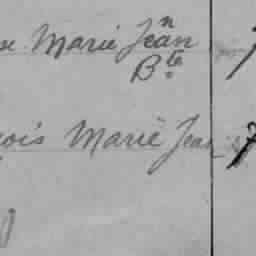 se Marie Jean
Bte
çois Marie Jean